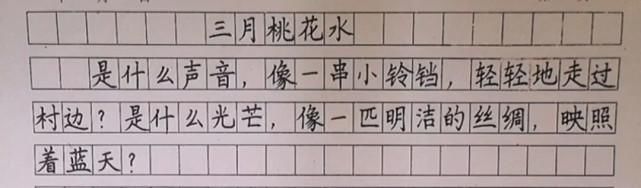 三月桃花水
是什么声音，像一串小铃铛，轻轻地走过
村边？是什么光芒，像一匹明洁的丝绸，映照
着蓝天？